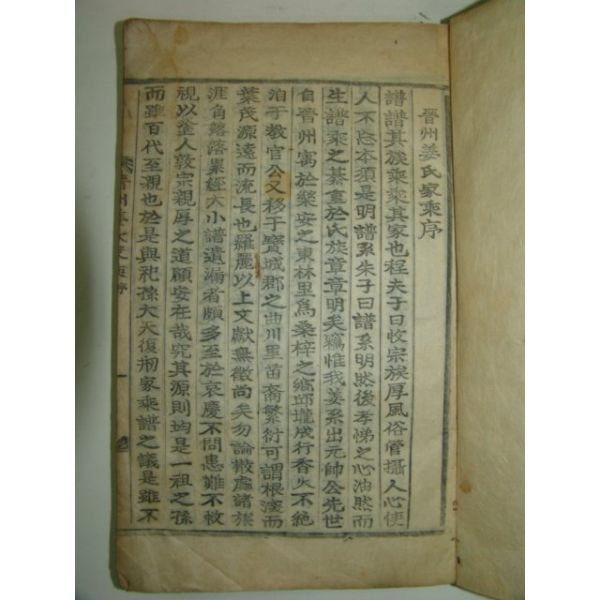 晋州姜氏家乘序
譜譜其族乘乘其家也程夫子曰收宗族厚風俗管攝人心使
人不忘本須是明譜系朱子曰譜系明然後孝悌之心油然而
生譜乘之綦重於氏族章章明矣竊惟我姜系出元帥公先世
自晋州寓於樂安之東林里爲桑梓之鄕邱壠成行香火不絶
洎于教官公又移于寶城郡之曲川里苗裔繁衍可謂根深而
葉茂源遠而流長也羅麗以上文獻無徵尚矣勿論散處諸族
涯角落落累經大小譜遺漏者頗多至於哀慶不問患難不救
視以金人敦宗親厚之道顧安在哉究其源則均是一祖之孫
而雖百代至親也於是與祀孫大天復刱家乘譜之議是雖不